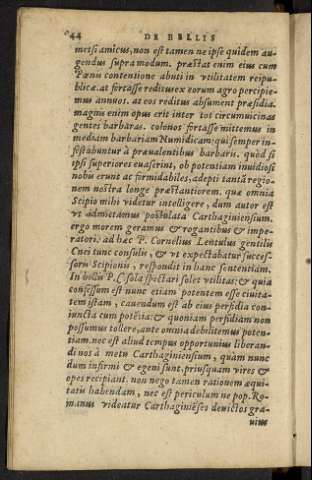 44 DE BELLIS
metsi amicus, non est tamen ne ipse quidem au-
gendus supra modum. præstat enim eius cum
Pœnis contentione abuti in vtilitatem reipu-
blicæ. at fortasse reditus ex eorum agro percipie-
mus annuos. at eos reditus absument præsidia.
magnis enim opus erit inter tot circumuicinas
gentes barbaras. colonos fortasse mittemus in
mediam barbariam Numidicam: qui semper in-
festabuntur à præualentibus barbaris. quòd si
ipsi superiores euaserint, ob potentiam inuidiosi
nobis erunt ac formidabiles, adepti tanta region-
nem nostra longe præstantiorem. quæ omnia
Scipio mihi videtur intelligere, dum autor est
vt admittamus postulata Carthaginiensium.
ergo morem geramus & rogantibus & impe-
ratori. ad hæc P. Cornelius Lentulus gentilis
Cnei tunc consulis, & vt expectabatur succes-
soris Scipionis, respondit in hanc sententiam.
In bellis P. C. sola spectari solet vtilitas: & quia
confessum est nunc etiam potentem esse ciuita-
tem istam, cauendum est ab eius perfidia con-
iuncta cum potētia: & quoniam perfidiam non
possumus tollere, ante omnia debilitemus poten-
tiam. nec est aliud tempus opportunius liberan-
di nos à metu Carthaginiensium, quàm nunc
dum infirmi & egeni sunt, priusquam vires &
opes recipiant. non nego tamen rationem æqui-
tatis habendam, nec est periculum ne pop. Ro-
manus videatur Carthaginiēses deuictos gra-
uius